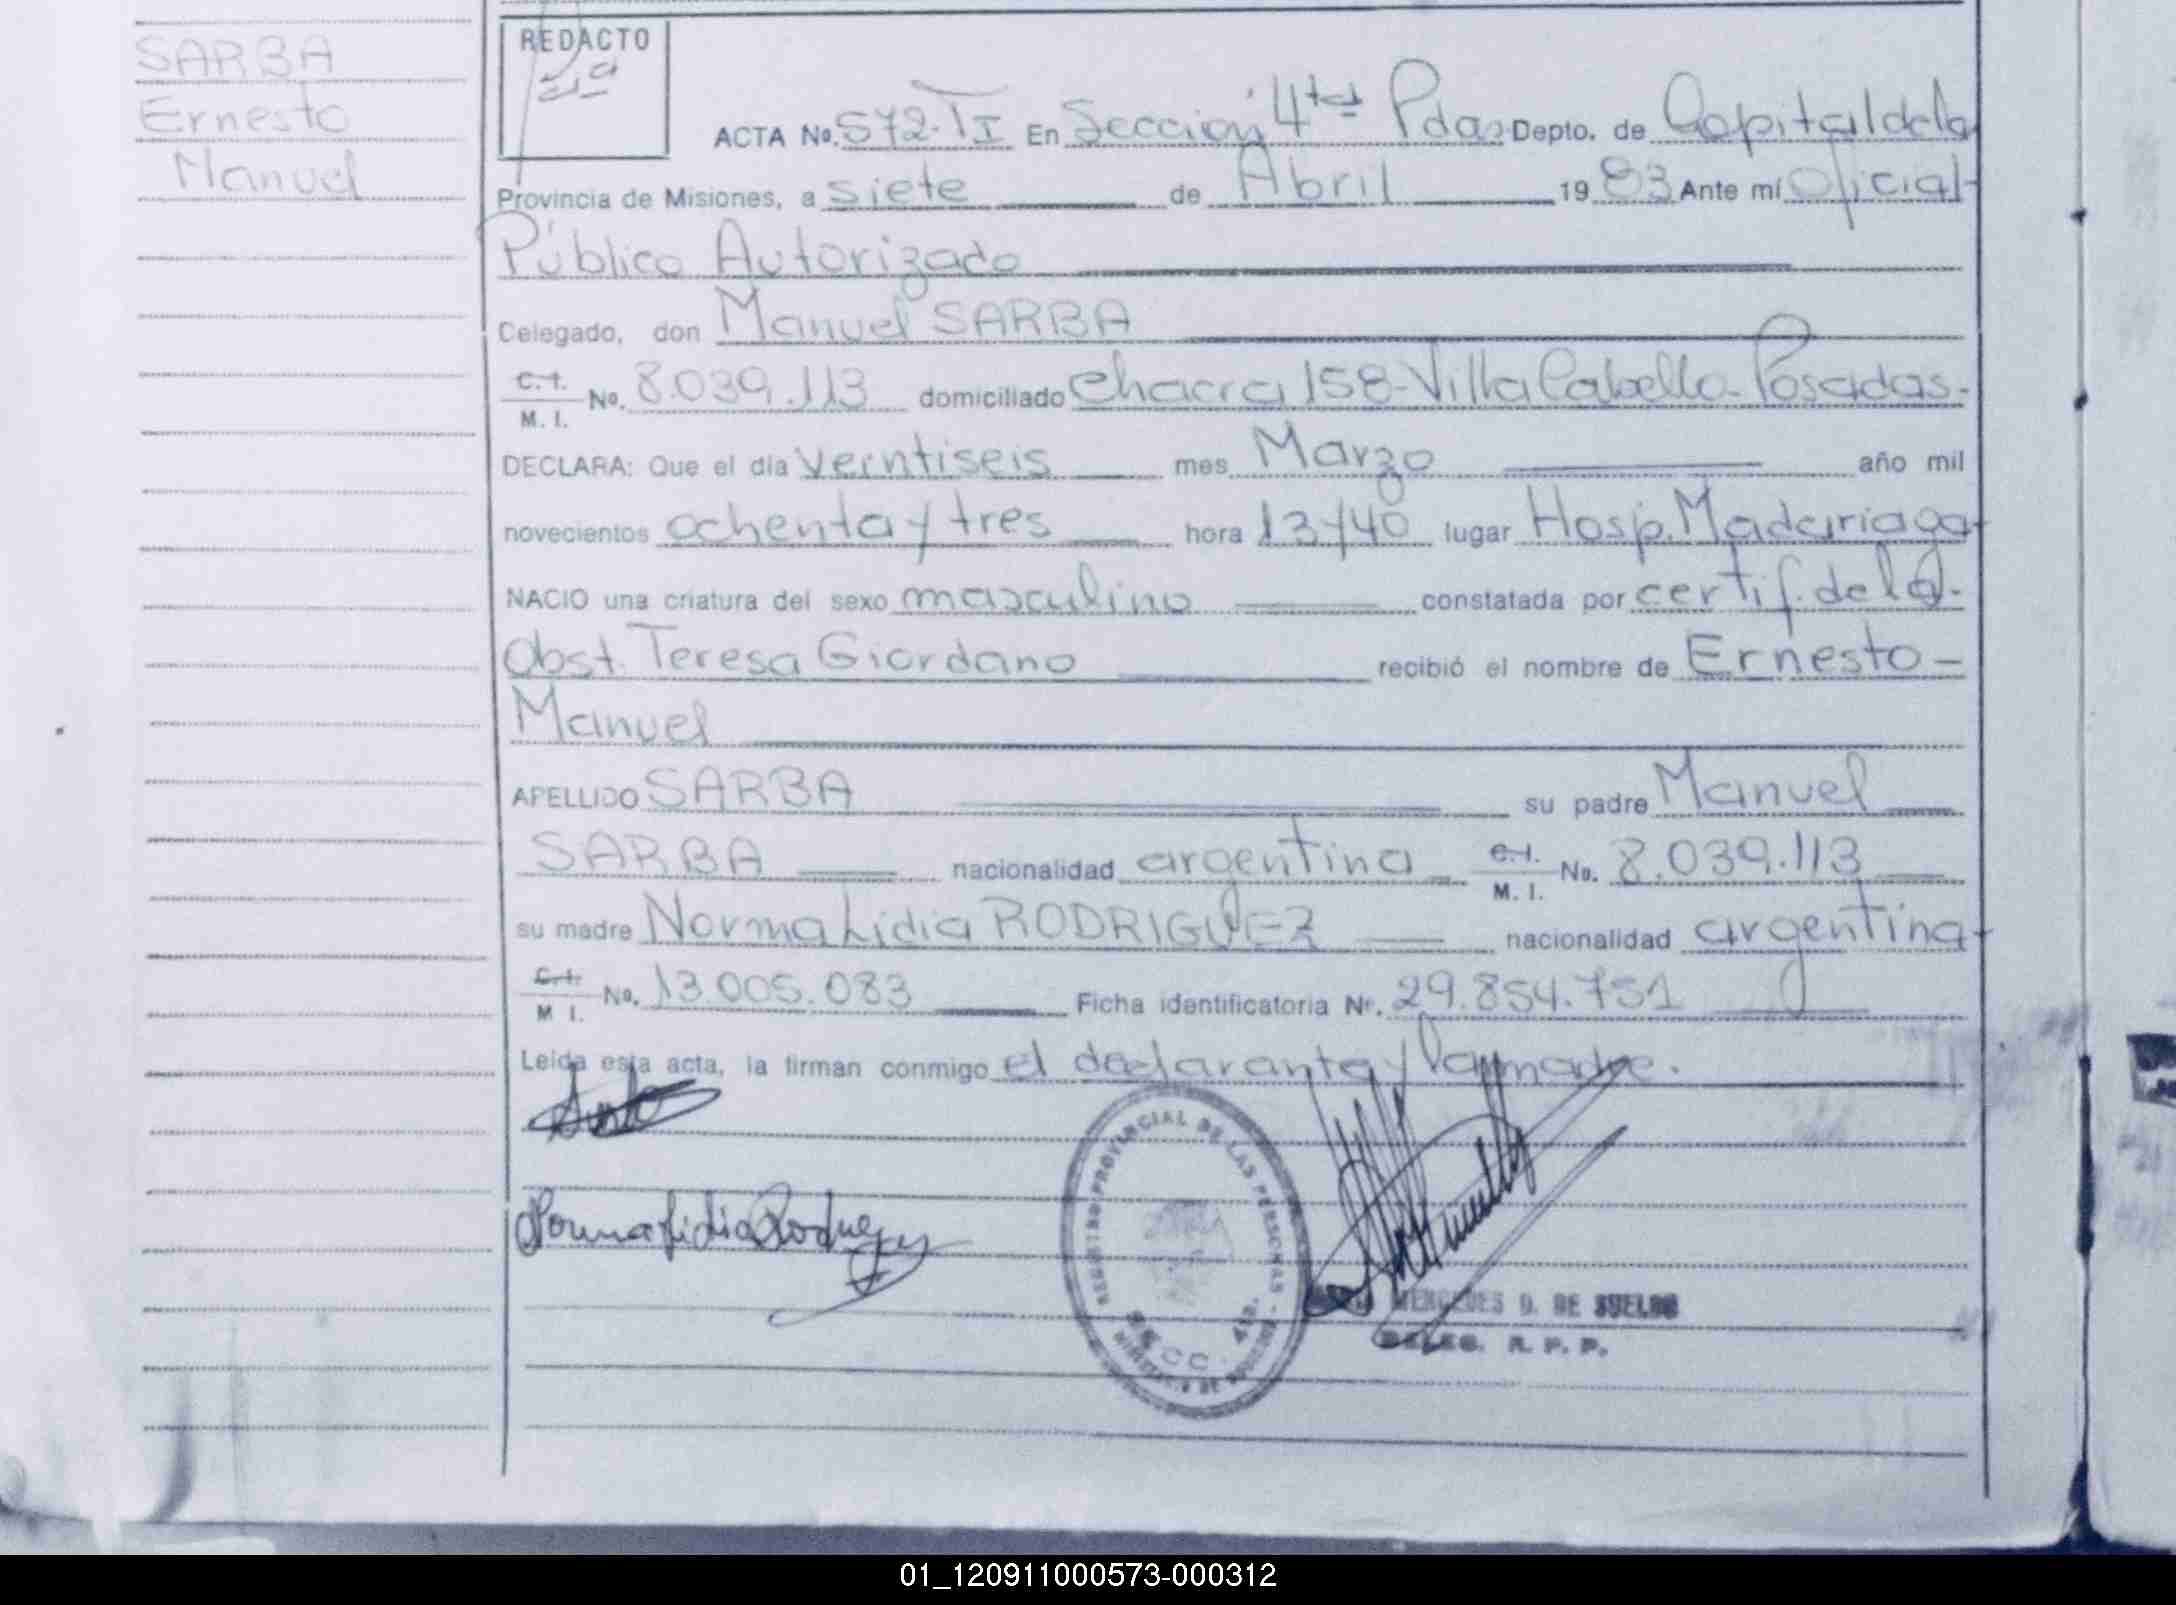 SARBA
Ernesto
Manuel
REDACTO
ACTA No. 572. TI En Sección 4ta Pdas Depto. de Capital de la
Provincia de Misiones, a siete de Abril 1983 Ante mí Oficial
Público Autorizado
Delegado, don Manuel SARBA
C.I. M. I. No. 8.039.113 domiciliado Chacra 158-Villa Cabello-Posadas-
DECLARA: Que el día veintiseis mes Marzo año mil
novecientos ochenta y tres hora 13y40 lugar Hosp. Madariaga
NACIO una criatura del sexo masculino constatada por certif. de la
Obst. Teresa Giordano recibió el nombre de Ernesto-
Manuel
APELLIDO SARBA su padre Manuel
SARBA nacionalidad argentina C.I. M. I. No. 8.039.113
su madre Norma Lidia RODRIGUEZ nacionalidad argentina
C.I. M I. No. 13.005.083 Ficha identificatoria Nr. 29.854.751
Leída esta acta, la firman conmigo el declarante y la madre.
Norma Lidia Rodriguez
REGISTRO PROVINCIAL DE LAS PERSONAS
SECC. 4ta.
MINISTERIO DE GOBIERNO
MERCEDES D. DE SUELDO
DELEG. R. P. P.
01_120911000573-000312